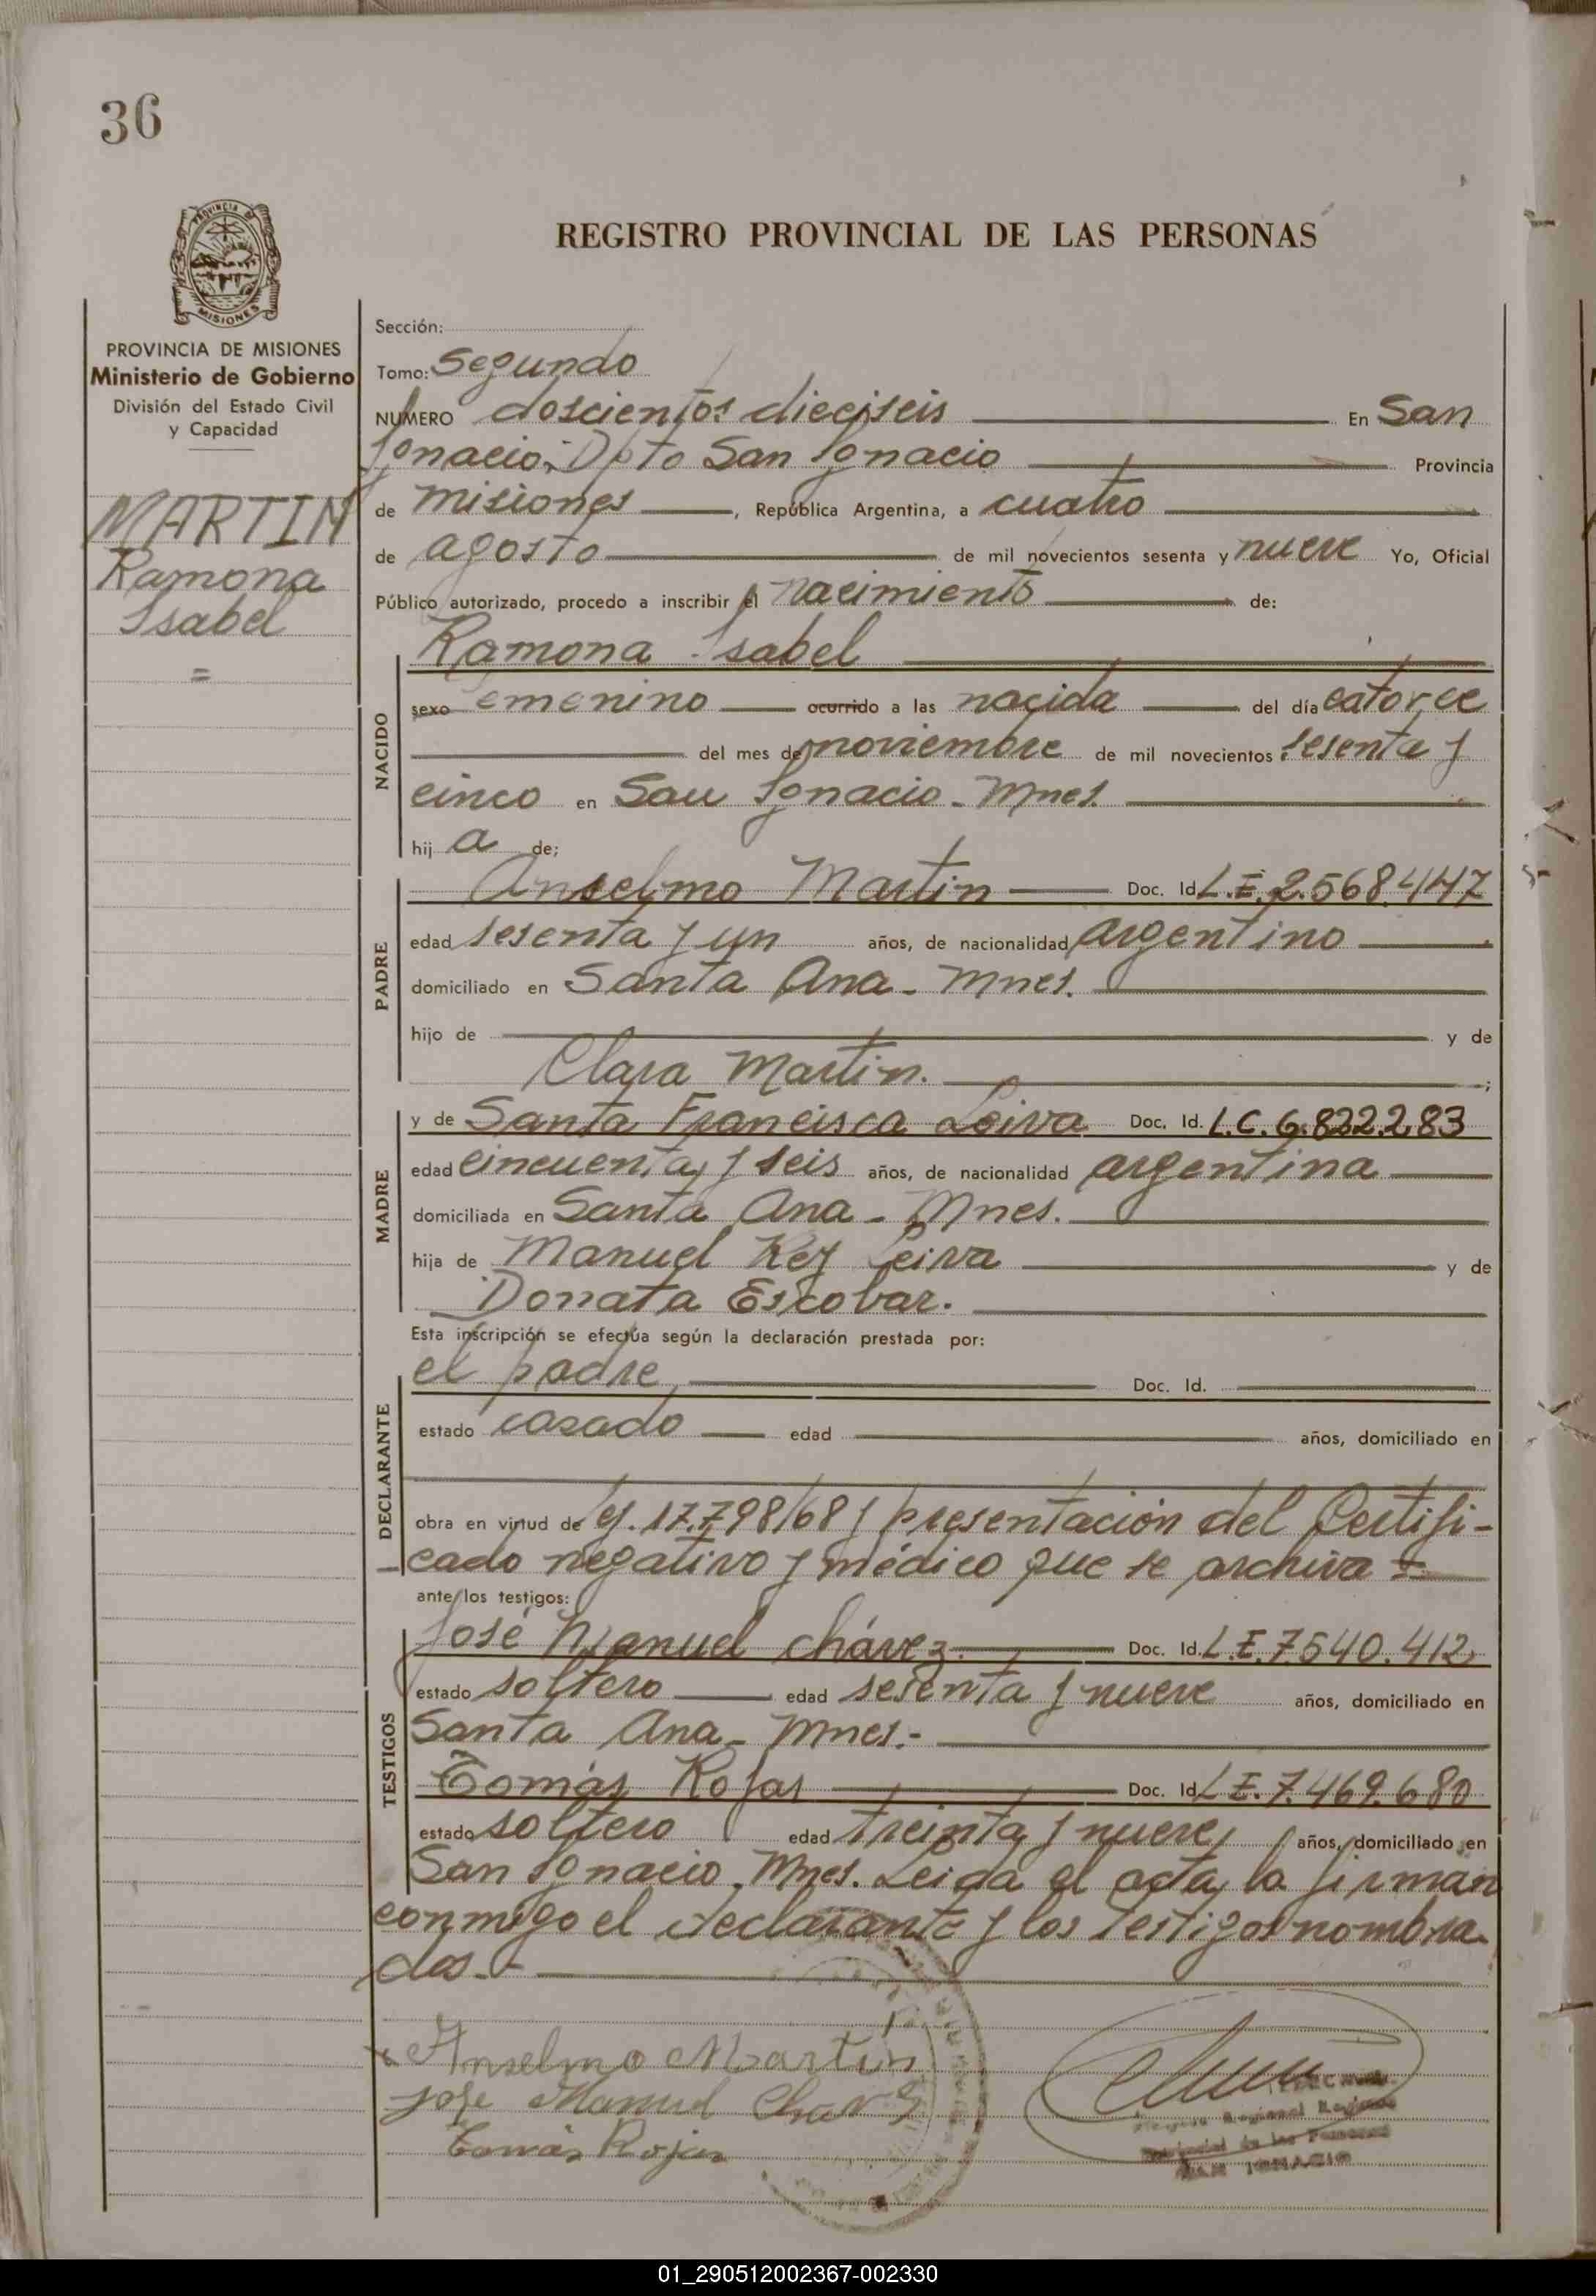 36
PROVINCIA DE
MISIONES
REGISTRO PROVINCIAL DE LAS PERSONAS
PROVINCIA DE MISIONES
Ministerio de Gobierno
División del Estado Civil
y Capacidad
MARTIN
Ramona
Isabel
=
Sección:
Tomo: Segundo
NUMERO doscientos dieciseis En San
Ignacio, Dpto San Ignacio Provincia
de Misiones, República Argentina, a cuatro
de agosto de mil novecientos sesenta y nueve Yo, Oficial
Público autorizado, procedo a inscribir el nacimiento de:
Ramona Isabel
NACIDO
sexo femenino ocurrido a las nacida del día catorce
del mes de noviembre de mil novecientos sesenta y
cinco en San Ignacio - Mnes.
hij a de:
PADRE
Anselmo Martin Doc. Id. L.E. 2.568.447
edad sesenta y un años, de nacionalidad argentino
domiciliado en Santa Ana - Mnes.
hijo de y de
Clara Martin. ;
MADRE
y de Santa Francisca Leiva Doc. Id. L.C. 6.822.283
edad cincuenta y seis años, de nacionalidad argentina
domiciliada en Santa Ana - Mnes.
hija de Manuel Rey Leiva y de
Donata Escobar.
Esta inscripción se efectúa según la declaración prestada por:
DECLARANTE
el padre Doc. Id.
estado casado edad años, domiciliado en
obra en virtud de ley. 17.798/68 y presentación del Certifi-
cado negativo y médico que se archiva =
ante los testigos:
TESTIGOS
José Manuel Chávez. Doc. Id. L.E. 7.540.412
estado soltero edad sesenta y nueve años, domiciliado en
Santa Ana - Mnes.-
Tomás Rojas Doc. Id. L.E. 7.469.680
estado soltero edad treinta y nueve años, domiciliado en
San Ignacio. Mnes. Leida el acta la firman
conmigo el declarante y los testigos nombra-
dos.-
Anselmo Martin
Jose Manuel Chavez
Tomás Rojas
Provincial de las Personas
SAN IGNACIO
01_290512002367-002330